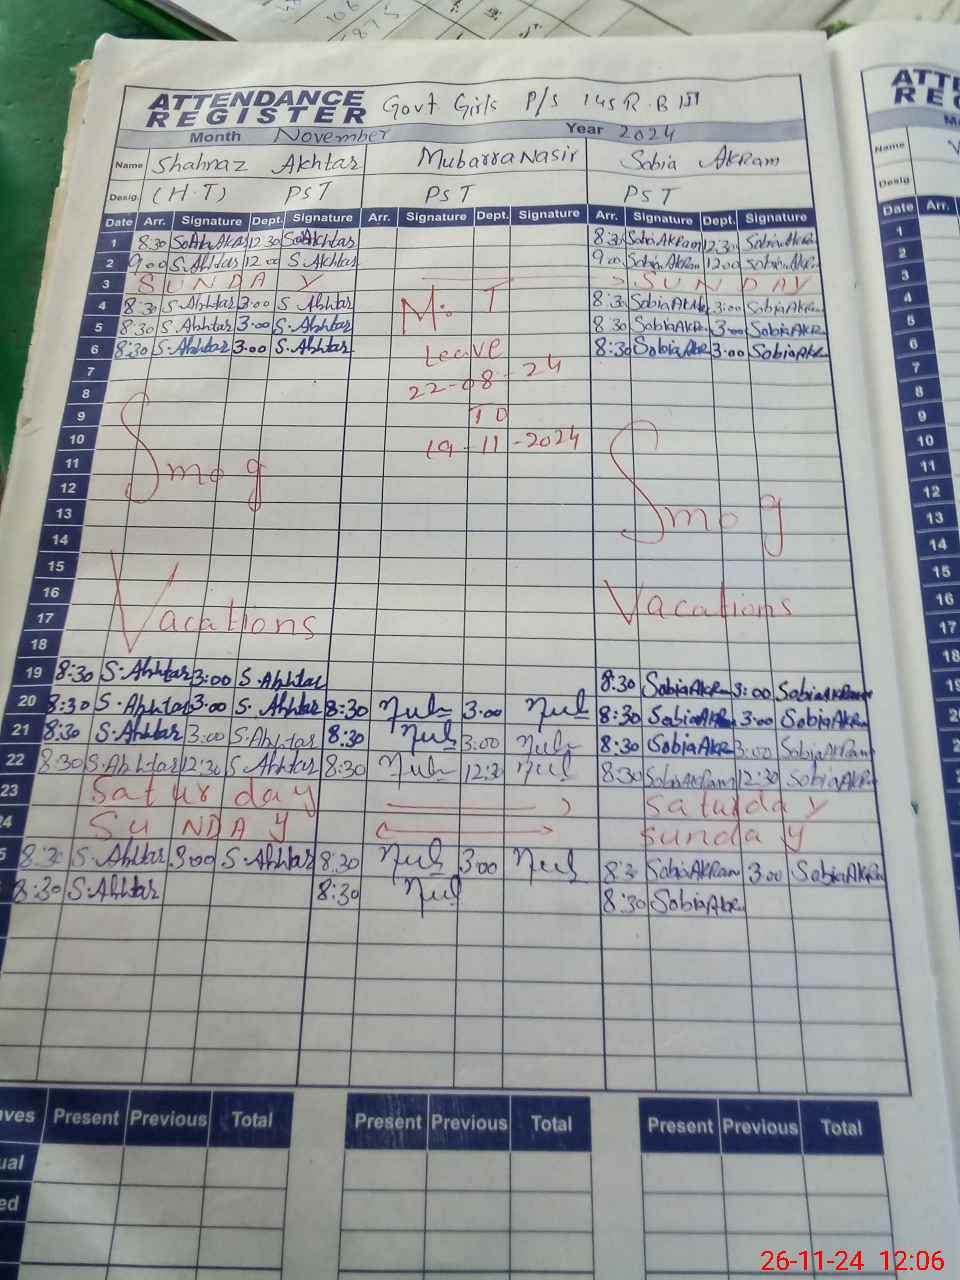 ATTENDANCE REGISTER Govt Girls P/S 145 R.B
Month November Year 2024
Name Shahnaz Akhtar Mubarra Nasir Sobia AKRam
Desig. (H.T) PST PST PST
Date Arr. Signature Dept. Signature Arr. Signature Dept. Signature Arr. Signature Dept. Signature
1 8:30 12:30 8:30 Sobia AKRam 12:30 Sobia AKRam
2 9:00 S.Akhtar 12:00 S.Akhtar 9:00 Sobia AKRam 12:00 Sobia AKRam
3 SUNDAY SUNDAY
4 8:30 S.Akhtar 3:00 S.Akhtar M: T 8:30 Sobia AKR 3:00 Sobia AKR
5 8:30 S.Akhtar 3:00 S.Akhtar 8:30 Sobia AKR 3:00 Sobia AKR
6 8:30 S.Akhtar 3:00 S.Akhtar Leave 8:30 Sobia AKR 3:00 Sobia AKR
7 22-08-24
8
9 TO
10 19-11-2024
11 Smog
12
13 Smog
14
15
16
17 Vacations Vacations
18
19 8:30 S.Akhtar 3:00 S.Akhtar 8:30 Sobia AKRam 3:00 Sobia AKRam
20 8:30 S.Akhtar 3:00 S.Akhtar 8:30 3:00 8:30 Sobia AKRam 3:00 Sobia AKRam
21 8:30 S.Akhtar 3:00 S.Akhtar 8:30 3:00 8:30 Sobia AKR 3:00 Sobia AKRam
22 8:30 S.Akhtar 12:30 S.Akhtar 8:30 12:30 8:30 Sobia AKRam 12:30 Sobia AKR
23 Saturday Saturday
24 SUNDAY Sunday
5 8:30 S.Akhtar 3:00 S.Akhtar 8:30 3:00 8:30 Sobia AKRam 3:00 Sobia AKRam
8:30 S.Akhtar 8:30 8:30 Sobia AKR
ves Present Previous Total Present Previous Total Present Previous Total
ual
ed
26-11-24 12:06